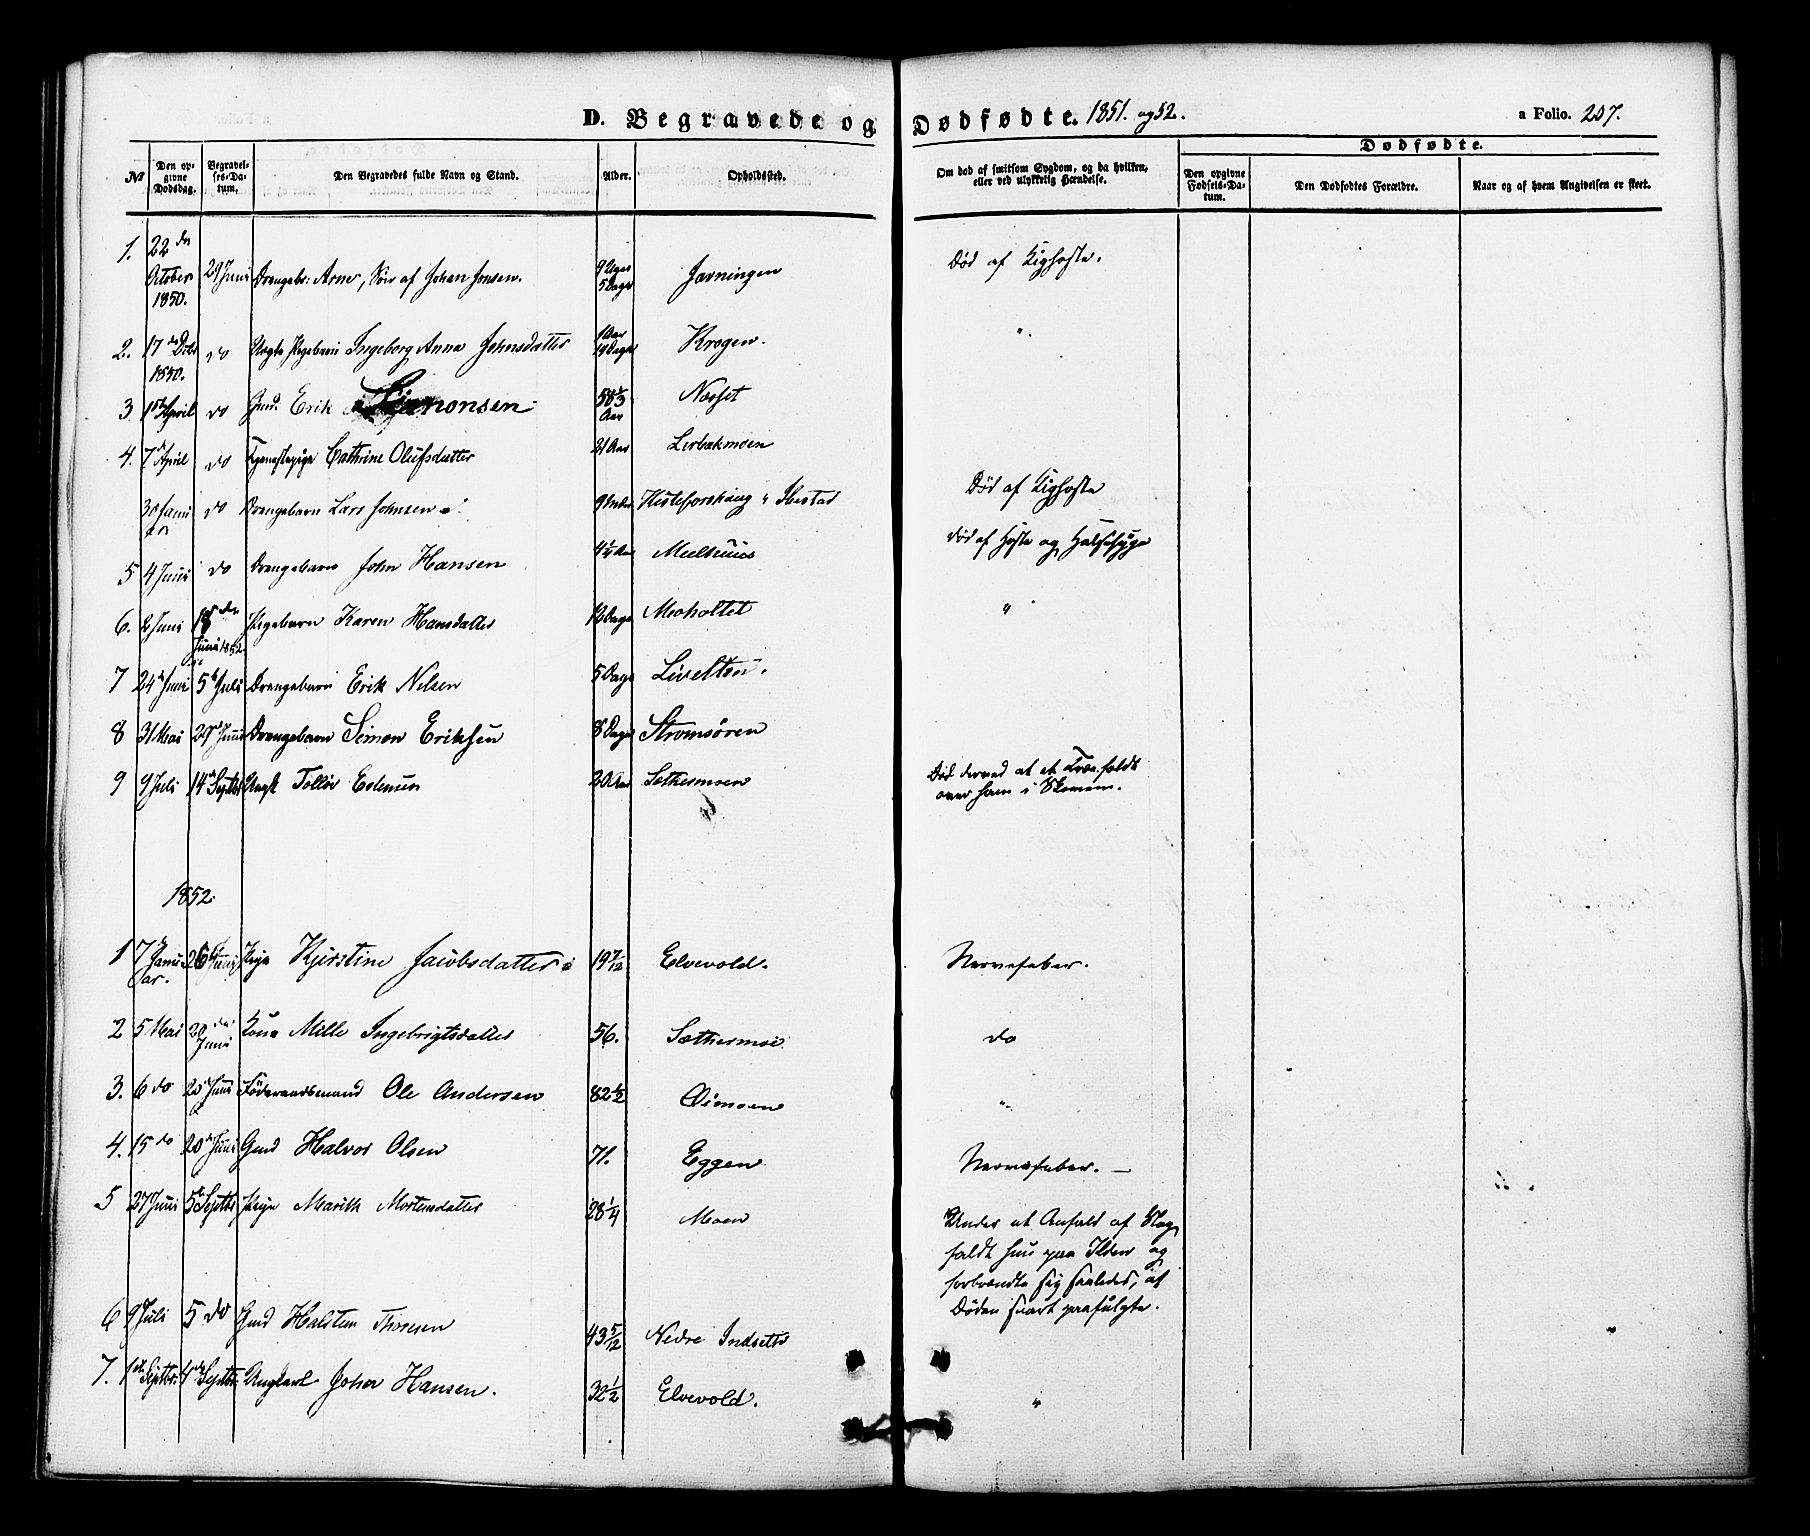 D. Begravede og Dødfødte. 1851. og 52.
a Folio. 207.
No
Den opgivne Dødsdag.
Begravelses-Datum.
Den Begravedes fulde Navn og Stand.
Alder.
Opholdssted.
Om død af smitsom Sygdom, og da hvilken, eller ved ulykkelig Hændelse.
Dødfødte.
Den opgivne Fødsels-Datum.
Den Dødfødtes Forældre.
Naar og af hvem Angivelsen er skeet.
1. 22de October 1850. 29 Juni Drengeb: Arne, Søn af Johan Jonsen. 9 Uger 5 Dage Javningen Død af Kighoste.
2. 17de Debr 1850. do Uægte Pigebarn Ingeborg Anna Johnsdatter 1 Aar 14 Dage Krogen. "
3 1ste April do Gmd. Erik Simonsen 58 1/3 Aar Næsset
4. 7de April do Tjenestepige Cathrine Olufsdatter 21 Aar Lerbækmoen
30 Janu do Drengebarn Lars Johnsen 9 Mdr Ibestad Død af Kighoste
5 4 Juni do Drengebarn John Hansen 4 1/4 Aar Død af Hoste og Halssyge
6. 2 Juni 18de Juni 1852. Pigebarn Karen Hansdatter 12 Dage Moholtet "
7 24de Juni 5te Juli Drengebarn Erik Nilsen 5 Dage Livelten.
8 31 Mai 29de Juni Drengebarn Simon Eriksen 8 Dage Stromsøren
9 9 Juli 14de Septbr Ungk Tollev Estensen 20 Aar Sæthermoen Død derved at et Træ faldt
over ham i Skoven.
1852.
1 7de Januar. 26de Juni Pige Kjerstine Jacobsdatter 19 7/12 Elvevold. Nervefeber.
2 5 Mai 20de Juni Kone Mille Ingebrigtsdatter 56. Sæthermoe do
3. 6 do 20de Juni Føderaadsmand Ole Andersen 82 1/2 Oimoen "
4. 15 do 20de Juni Gmd Halvor Olsen 71. Eggen Nervefeber. —
5 27 Juni 5te Septbr Pige Marith Mortensdatter 28 1/4 Moen Under et Anfald af Slag
faldt hun paa Ilden og
forbrændte sig saaledes, at
Døden snart paafulgte.
6 9 Juli 5 do Gmd Halsten Thoresen 43 5/12 Nedre Indsette
7. 1ste Septbr. Septbr Ungkarl Johan Hansen. 32 1/2 Elvevold. "